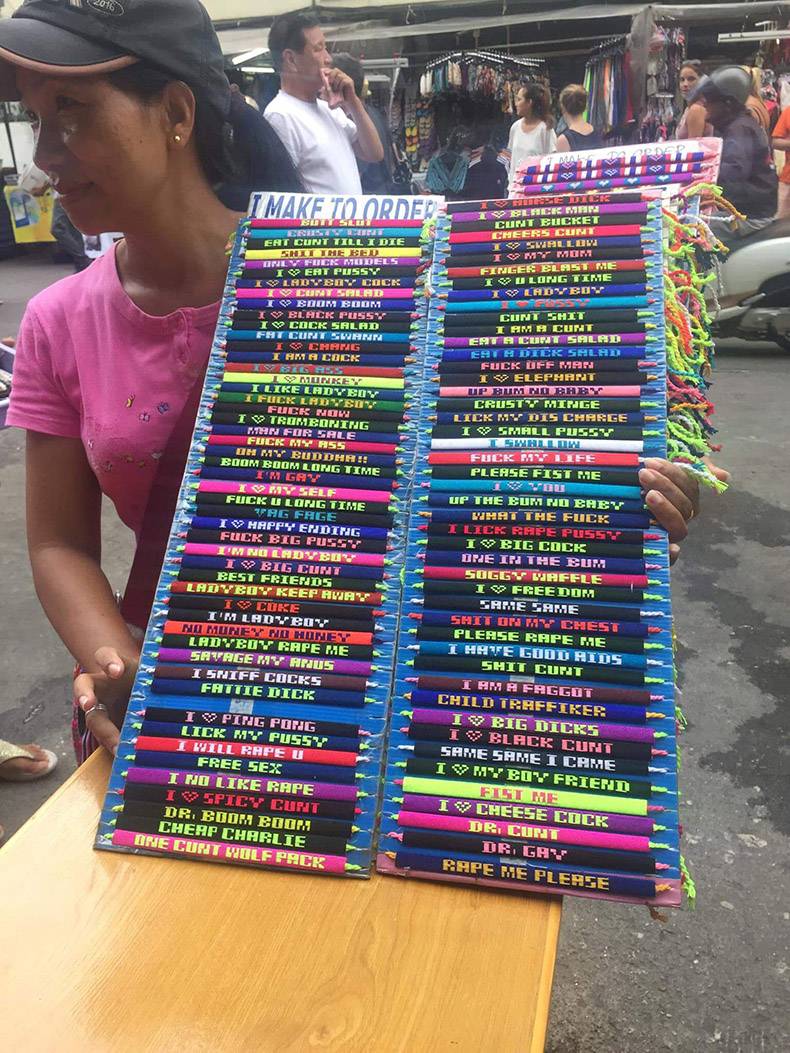 2016
I MAKE TO ORDER
BUTT SLUT
CRUSTY CUNT
EAT CUNT TILL I DIE
SHIT THE BED
ONLY FUCK MODELS
I ♡ EAT PUSSY
I ♡ LADYBOY COCK
I ♡ CUNT SALAD
I ♡ BOOM BOOM
I ♡ BLACK PUSSY
I ♡ COCK SALAD
FAT CUNT SWANN
I ♡ CHANG
I AM A COCK
I ♡ BIG ASS
I ♡ MONKEY
I LIKE LADYBOY
I FUCK LADYBOY
FUCK NOW
I ♡ TROMBONING
MAN FOR SALE
FUCK MY ASS
OH MY BUDDHA!!
BOOM BOOM LONG TIME
I'M GAY
I ♡ MY SELF
FUCK U LONG TIME
VAG FACE
I ♡ HAPPY ENDING
FUCK BIG PUSSY
I'M NO LADYBOY
I ♡ BIG CUNT
BEST FRIENDS
LADYBOY KEEP AWAY
I ♡ COKE
I'M LADYBOY
NO MONEY NO HONEY
LADYBOY RAPE ME
SAVAGE MY ANUS
I SNIFF COCKS
FATTIE DICK
I ♡ PING PONG
LICK MY PUSSY
I WILL RAPE U
FREE SEX
I NO LIKE RAPE
I ♡ SPICY CUNT
DR. BOOM BOOM
CHEAP CHARLIE
ONE CUNT WOLF PACK
I MADE TO ORDER
I ♡ HORSE DICK
I ♡ BLACK MAN
CUNT BUCKET
CHEERS CUNT
I ♡ SWALLOW
I ♡ MY MOM
FINGER BLAST ME
I ♡ U LONG TIME
I ♡ LADYBOY
I ♡ PUSSY
CUNT SHIT
I AM A CUNT
EAT A CUNT SALAD
EAT A DICK SALAD
FUCK OFF MAN
I ♡ ELEPHANT
UP BUM NO BABY
CRUSTY MINGE
LICK MY DIS CHARGE
I ♡ SMALL PUSSY
I SWALLOW
FUCK MY LIFE
PLEASE FIST ME
I ♡ YOU
UP THE BUM NO BABY
WHAT THE FUCK
I LICK RAPE PUSSY
I ♡ BIG COCK
ONE IN THE BUM
SOGGY WAFFLE
I ♡ FREEDOM
SAME SAME
SHIT ON MY CHEST
PLEASE RAPE ME
I HAVE GOOD AIDS
SHIT CUNT
I AM A FAGGOT
CHILD TRAFFIKER
I ♡ BIG DICKS
I ♡ BLACK CUNT
SAME SAME I CAME
I ♡ MY BOY FRIEND
FIST ME
I ♡ CHEESE COCK
DR. CUNT
DR. GAY
RAPE ME PLEASE